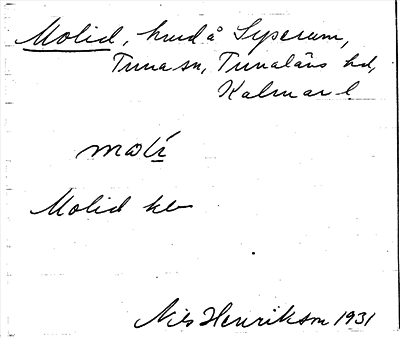 Molid, hmd å Syserum,
Tuna sn, Tunaläns hd,
Kalmar l.
molí
Molid kb
Nils Henrikson 1931